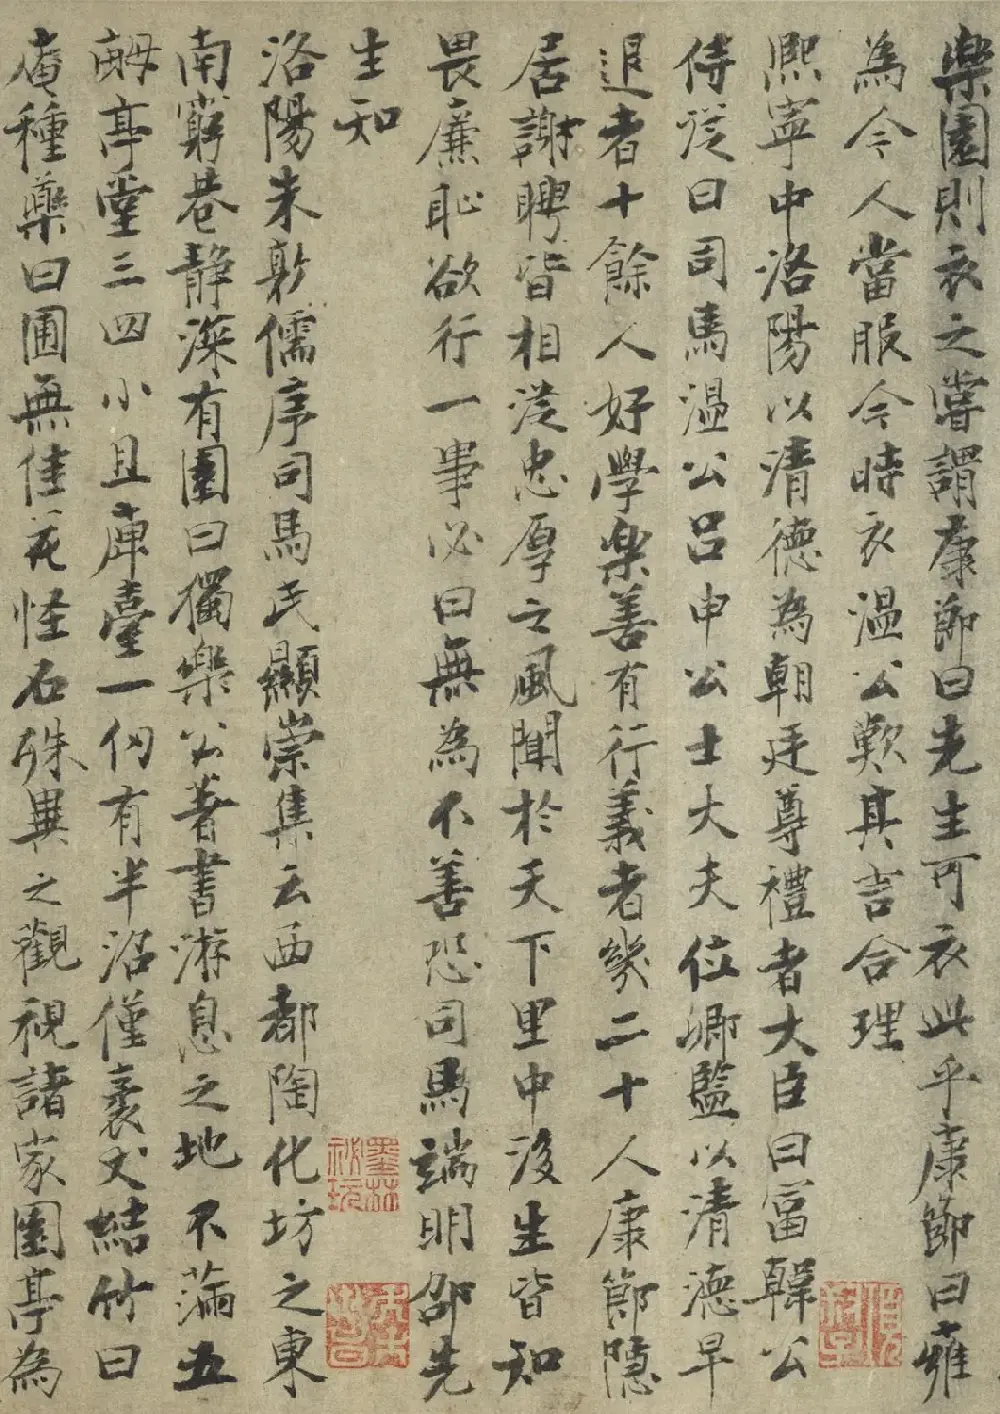 樂園則衣之嘗謂康節曰先生可衣此乎康節曰雍
為今人當服今時衣温公歎其言合理
熙寧中洛陽以清德為朝廷尊禮者大臣曰富韓公
侍從曰司馬温公吕申公士大夫位卿監以清德早
退者十餘人好學樂善有行義者幾二十人康節隱
居謝聘皆相從忠厚之風聞於天下里中後生皆知
畏廉恥欲行一事必曰無為不善恐司馬端明邵先
生知
洛陽朱敦儒序司馬氏顯崇集云西都陶化坊之東
南窮巷静深有園曰獨樂公著書游息之地不滿五
畝亭堂三四小且庳臺一仞有半沼僅袤丈結竹曰
庵種藥曰圃無佳花怪石殊異之觀視諸家園亭為
墨林秘玩